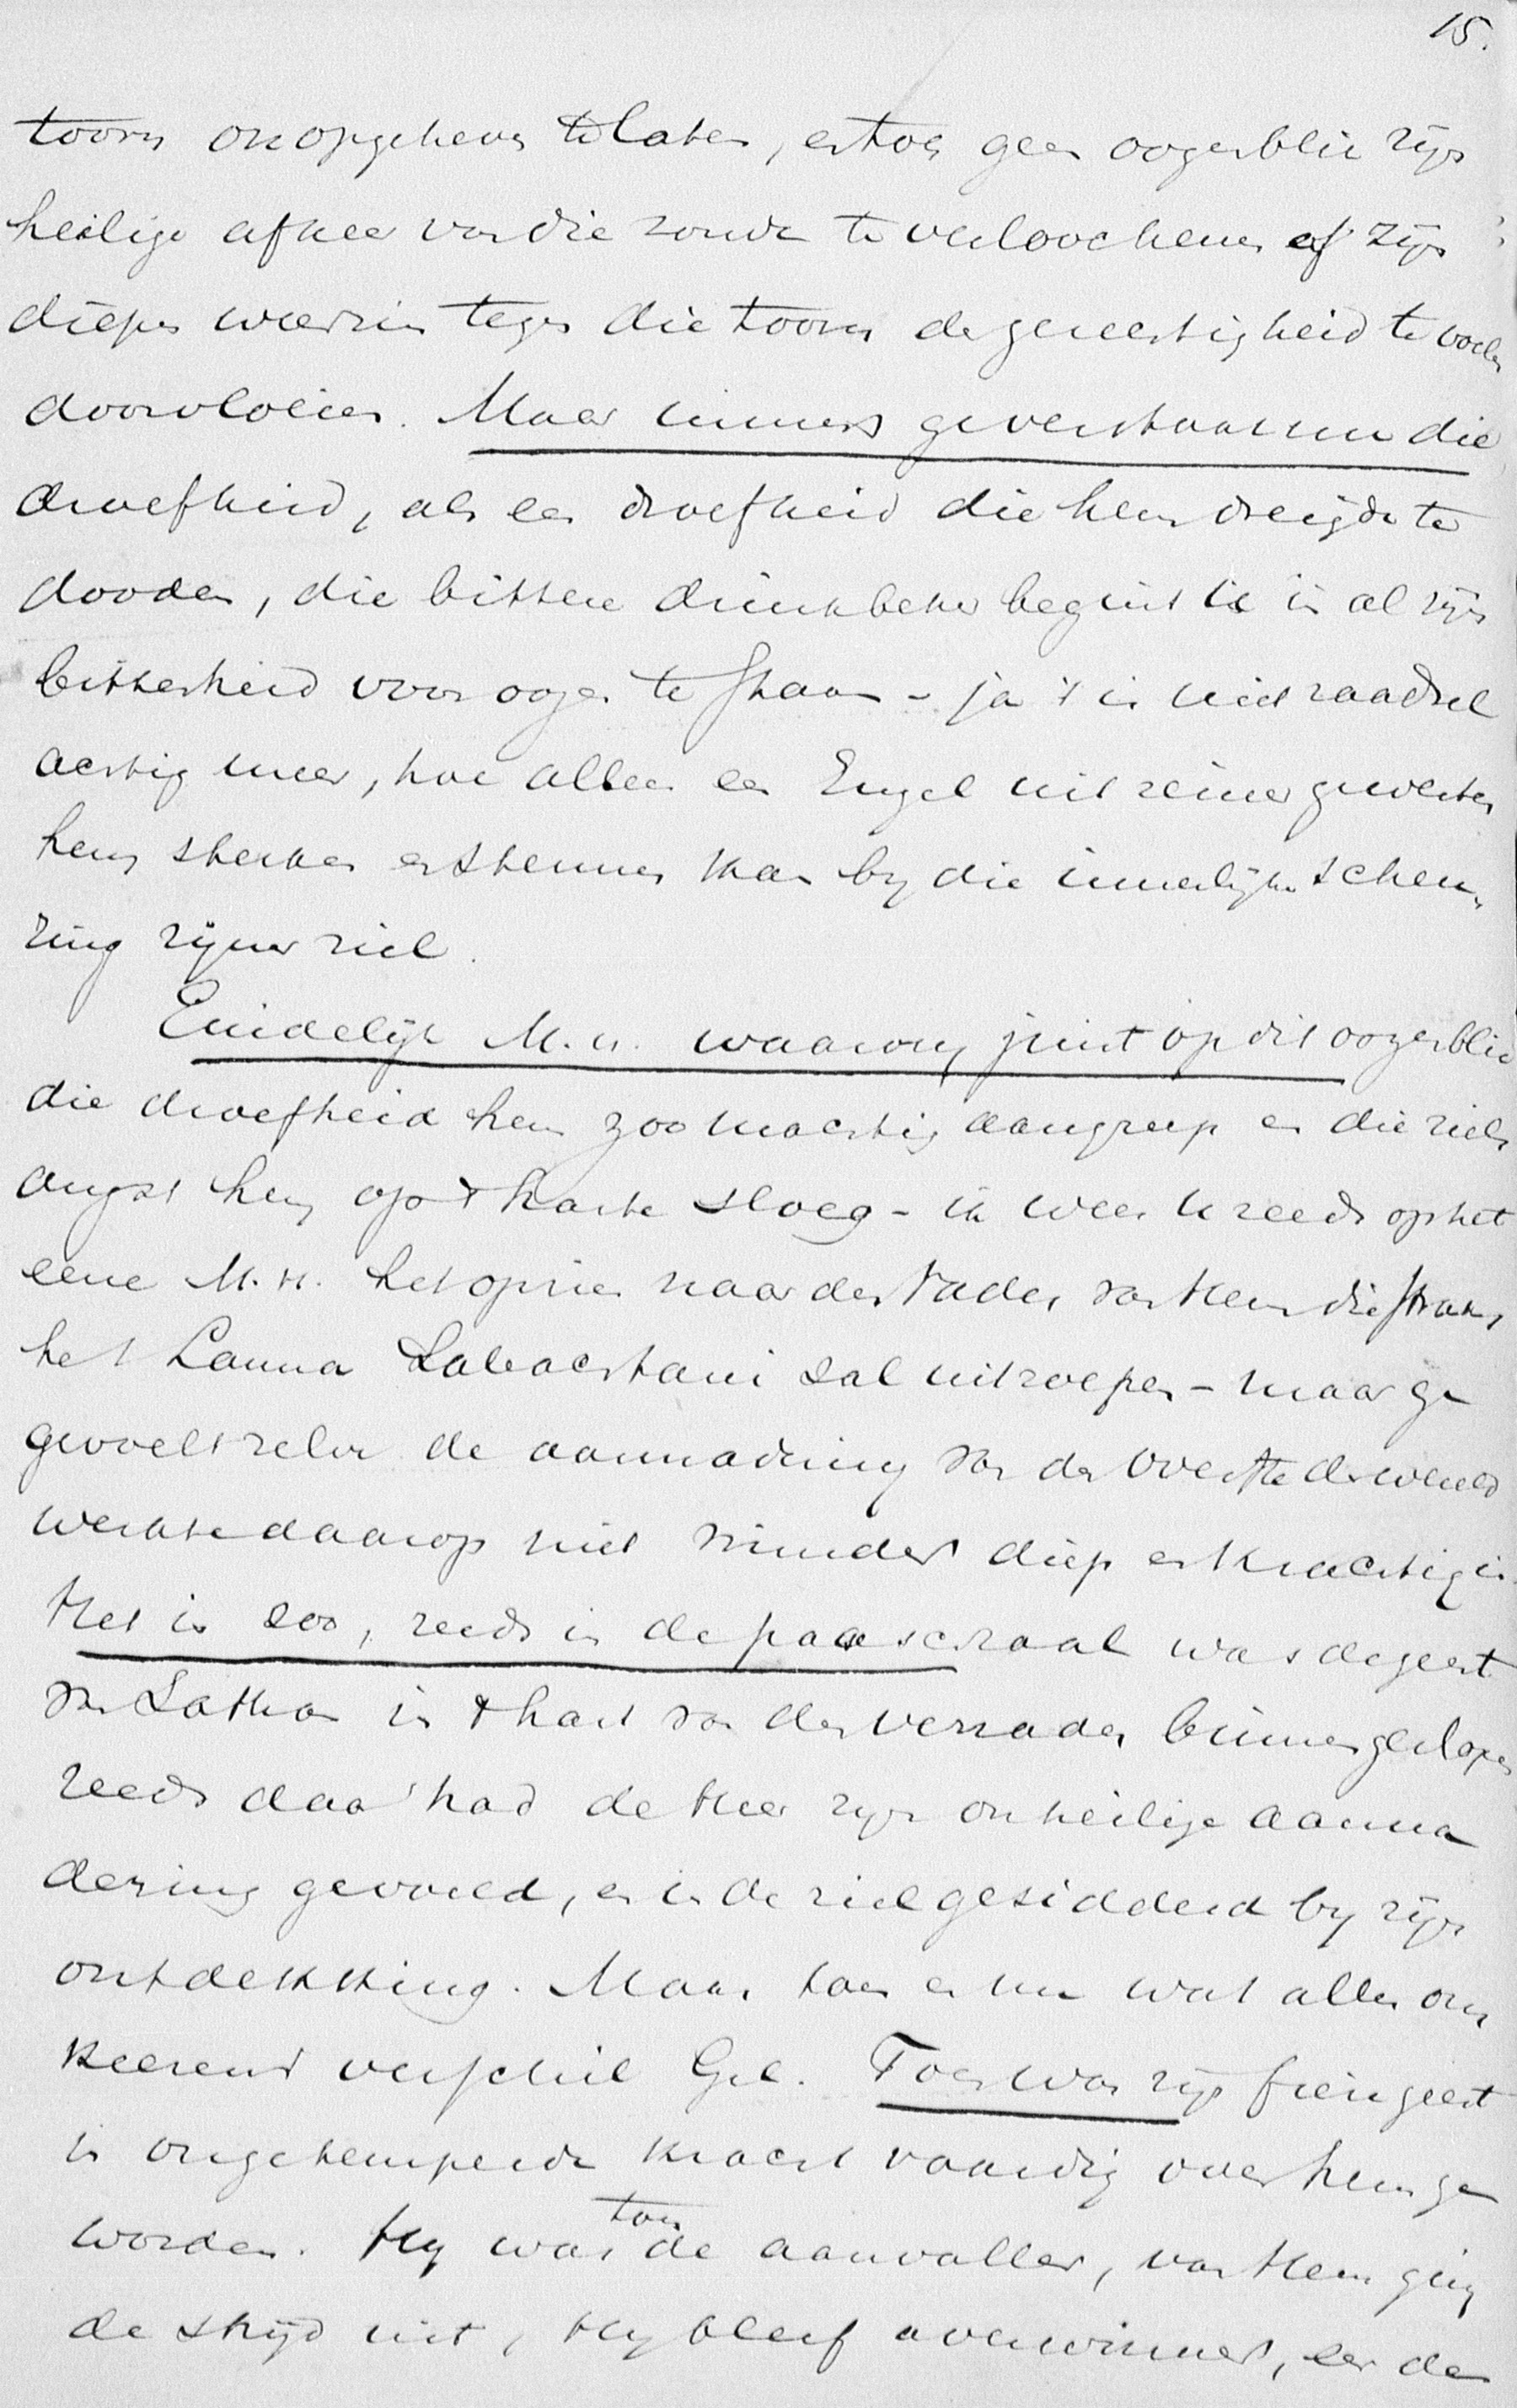 15.
toorn onopgeheven te laten, en toch geen oogenblik zijn
heilige afkeer van die zonde te verloochenen of zijn
diepen weerzin tegen die toorn de gerechtigheid te voelen
doorvloeien. Maar immers ge verstaat nu die
droefheid, als een droefheid die hem dreigde te
dooden, die bittere drinkbeker begint u in al zijn
bitterheid voor oogen te staan – ja 't is niet raadsel
achtig meer, hoe alleen een Engel uit reiner gewesten
hem sterken en steunen kan by die innerlijke scheu-
ring zijner ziel.
Eindelijk M.H. waarom juist op dit oogenblik
die droefheid hem zoo machtig aangreep en die ziels
angst hem op 't harte sloeg – ik wees u reeds op het
eene M.H. het opzien naar den Vader van Hem die straks
het Lamma Sabachtani zal uitroepen – maar ge
gevoelt zelve de aannadering van den Overste der wereld
werkte daarop niet minder diep en krachtig in.
Het is zoo, reeds in de paaschzaal was de geest
van Sathan in 't hart van den verrader binnengeslopen
reeds daar had de Heer zijn onheilige aanna
dering gevoeld, en in de ziel gesidderd by zijn
ontdekking. Maar toen en nu wat alles om
keerend verschil Gel. Toen was zijn geest
in ongetemperde kracht vaardig over hem ge
worden. Hy was toen de aanvaller, van Hem ging
de strijd uit, Hy bleef overwinnaar, en de